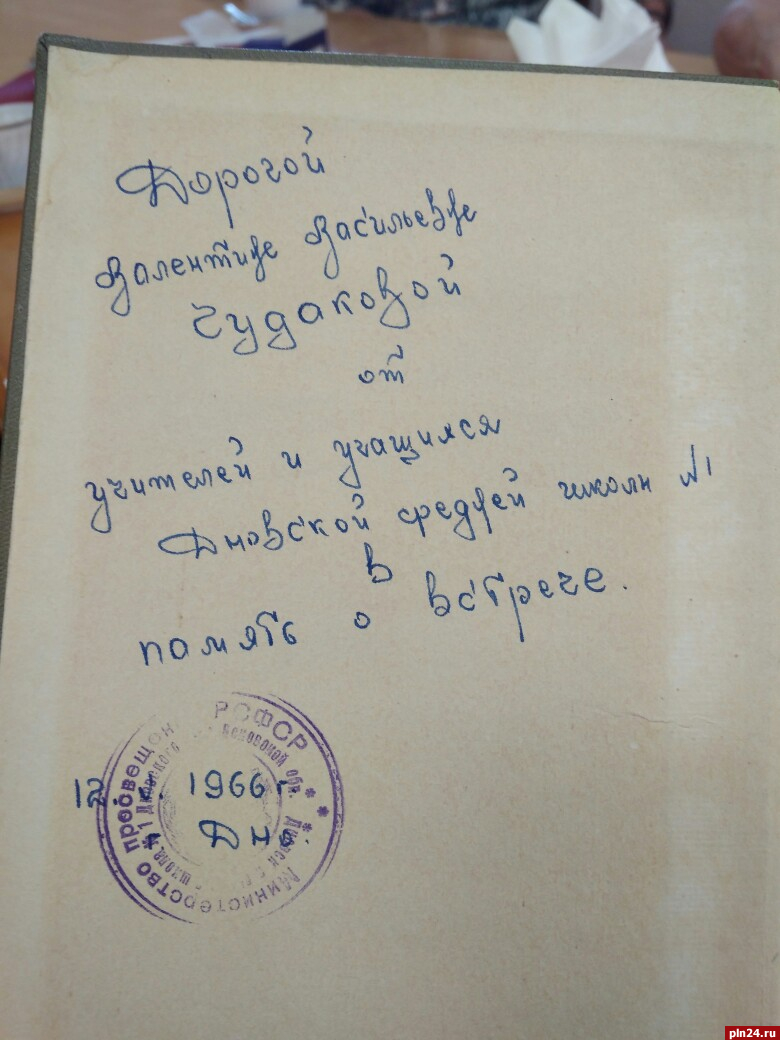 Дорогой
Валентине Васильевне
Чудаковой
от
учителей и учащихся
Дновской средней школы №1
в
память о встрече.
1966 г.
Дно
Министерство просвещения РСФСР
Псковской обл.
pln24.ru